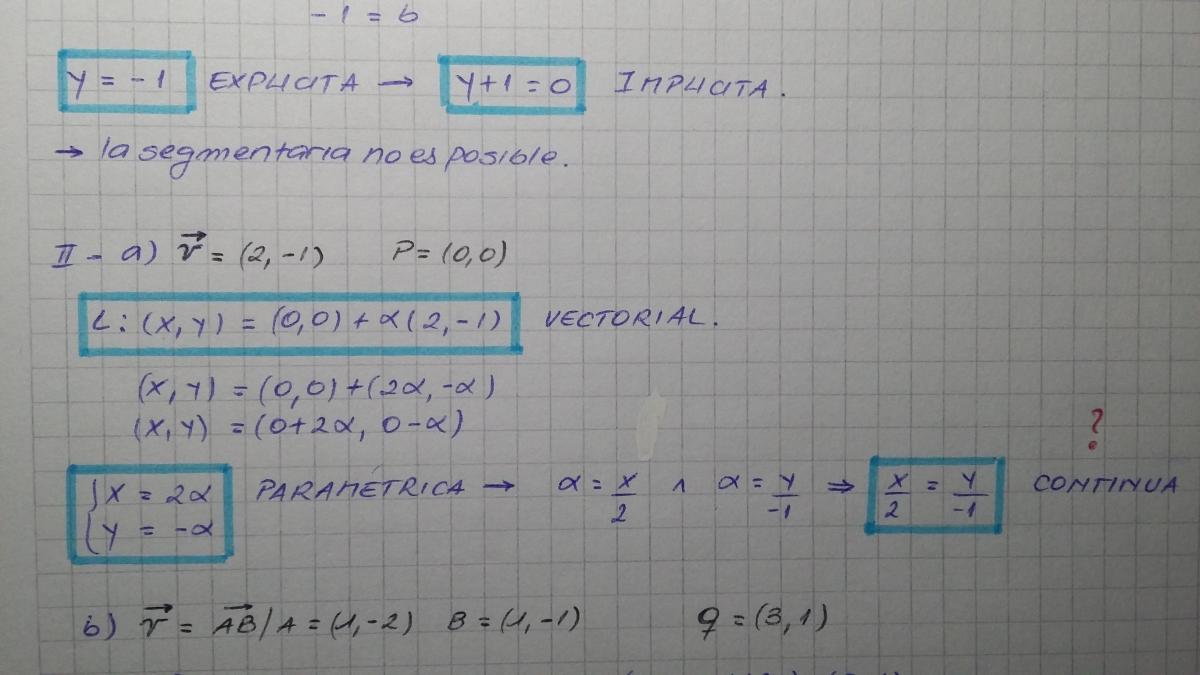 -1 = b
Y = -1 EXPLICITA → Y+1 = 0 IMPLICITA.
→ la segmentaria no es posible.
II - a) v⃗ = (2,-1) P = (0,0)
L: (X,Y) = (0,0) + α(2,-1) VECTORIAL.
(X,Y) = (0,0)+(2α,-α)
(X,Y) = (0+2α, 0-α)
?
{X = 2α PARAMÉTRICA → α = X/2 ∧ α = Y/-1 ⇒ X/2 = Y/-1 CONTINUA
{Y = -α
b) v⃗ = AB⃗ / A = (1,-2) B = (1,-1) q = (3,1)